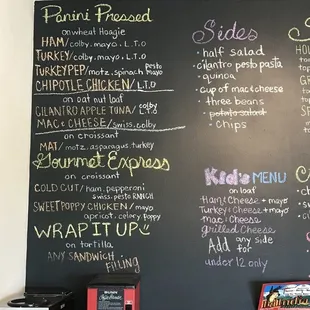 Panini Pressed
on wheat Hoagie
HAM/colby, mayo, L.T.O
TURKEY/colby, mayo, L.T.O
pesto
TURKEY PEP/motz, spinach mayo
CHIPOTLE CHICKEN/colby L.T.O
on oat nut loaf
CILANTRO APPLE TUNA/colby L.T.O
MAC & CHEESE/swiss, colby
on croissant
MAT/motz, asparagus, turkey
Gourmet Express
on croissant
COLD CUT/ham, pepperoni
swiss, pesto RANCH
SWEET POPPY CHICKEN/mayo
apricot, celery, poppy
WRAP IT UP
on tortilla
ANY SANDWICH
FILLING
Sides
• half salad
• cilantro pesto pasta
• quinoa
• cup of mac & cheese
• three beans
• potato salad
• chips
Kid's MENU
on loaf
Ham & Cheese + mayo
Turkey & Cheese + mayo
Mac & Cheese
Grilled Cheese
Add any side
for
under 12 only